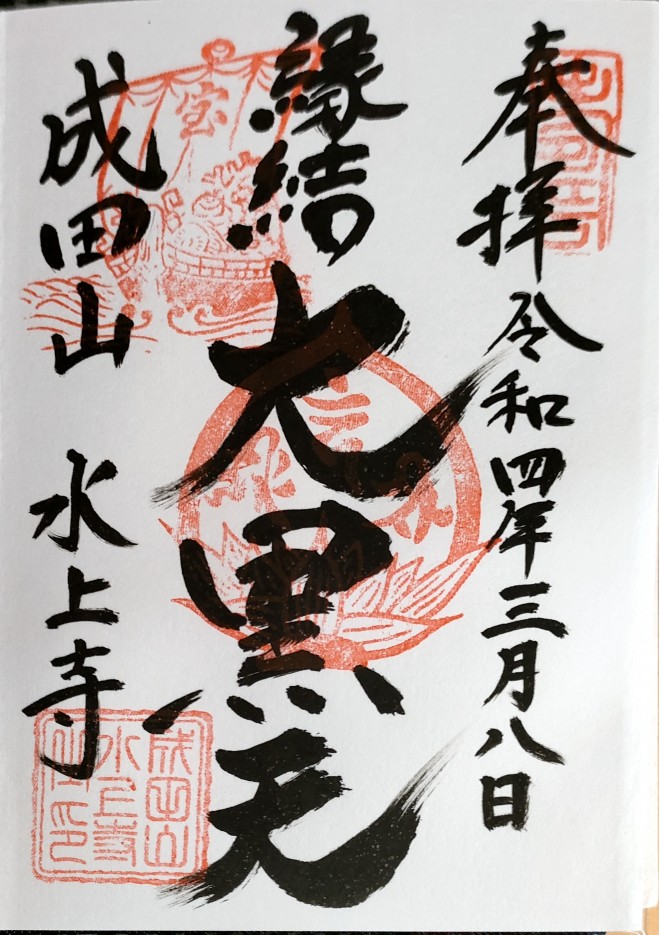 奉拝 令和四年三月八日
縁結
大黒天
成田山 水上寺
宝
成田山
水上寺